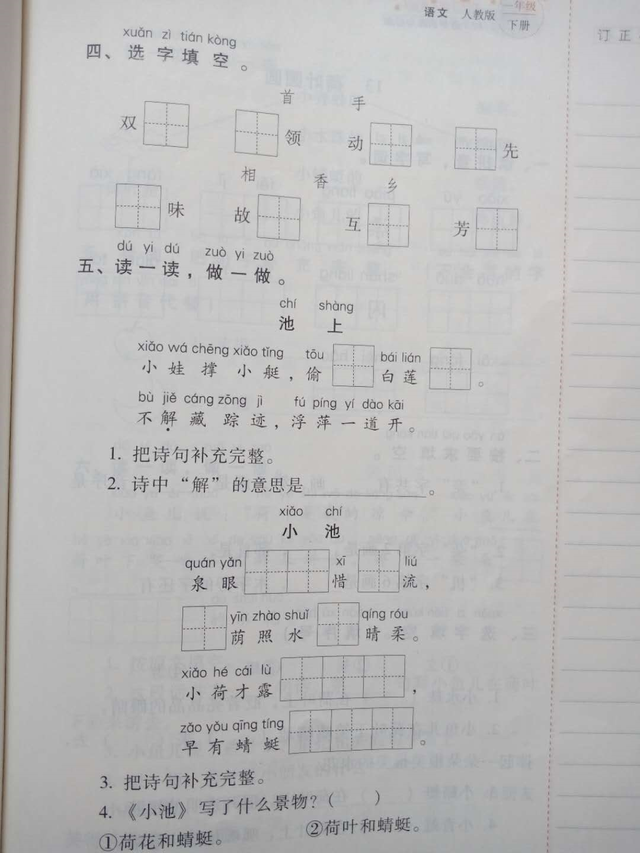 语文 人教版 一年级 下册
订正
xuǎn zì tián kòng
四、选字填空。
首 手
双 领 动 先
相 香 乡
味 故 互 芳
dú yi dú zuò yi zuò
五、读一读，做一做。
chí shàng
池 上
xiǎo wá chēng xiǎo tǐng tōu bái lián
小娃撑小艇，偷 白莲 。
bù jiě cáng zōng jì fú píng yí dào kāi
不解藏踪迹，浮萍一道开。
1. 把诗句补充完整。
2. 诗中“解”的意思是 。
xiǎo chí
小 池
quán yǎn xī liú
泉眼 惜 流，
yīn zhào shuǐ qíng róu
荫照水 晴柔。
xiǎo hé cái lù
小荷才露 ，
zǎo yǒu qīng tíng
早有蜻蜓 。
3. 把诗句补充完整。
4.《小池》写了什么景物？（ ）
①荷花和蜻蜓。 ②荷叶和蜻蜓。